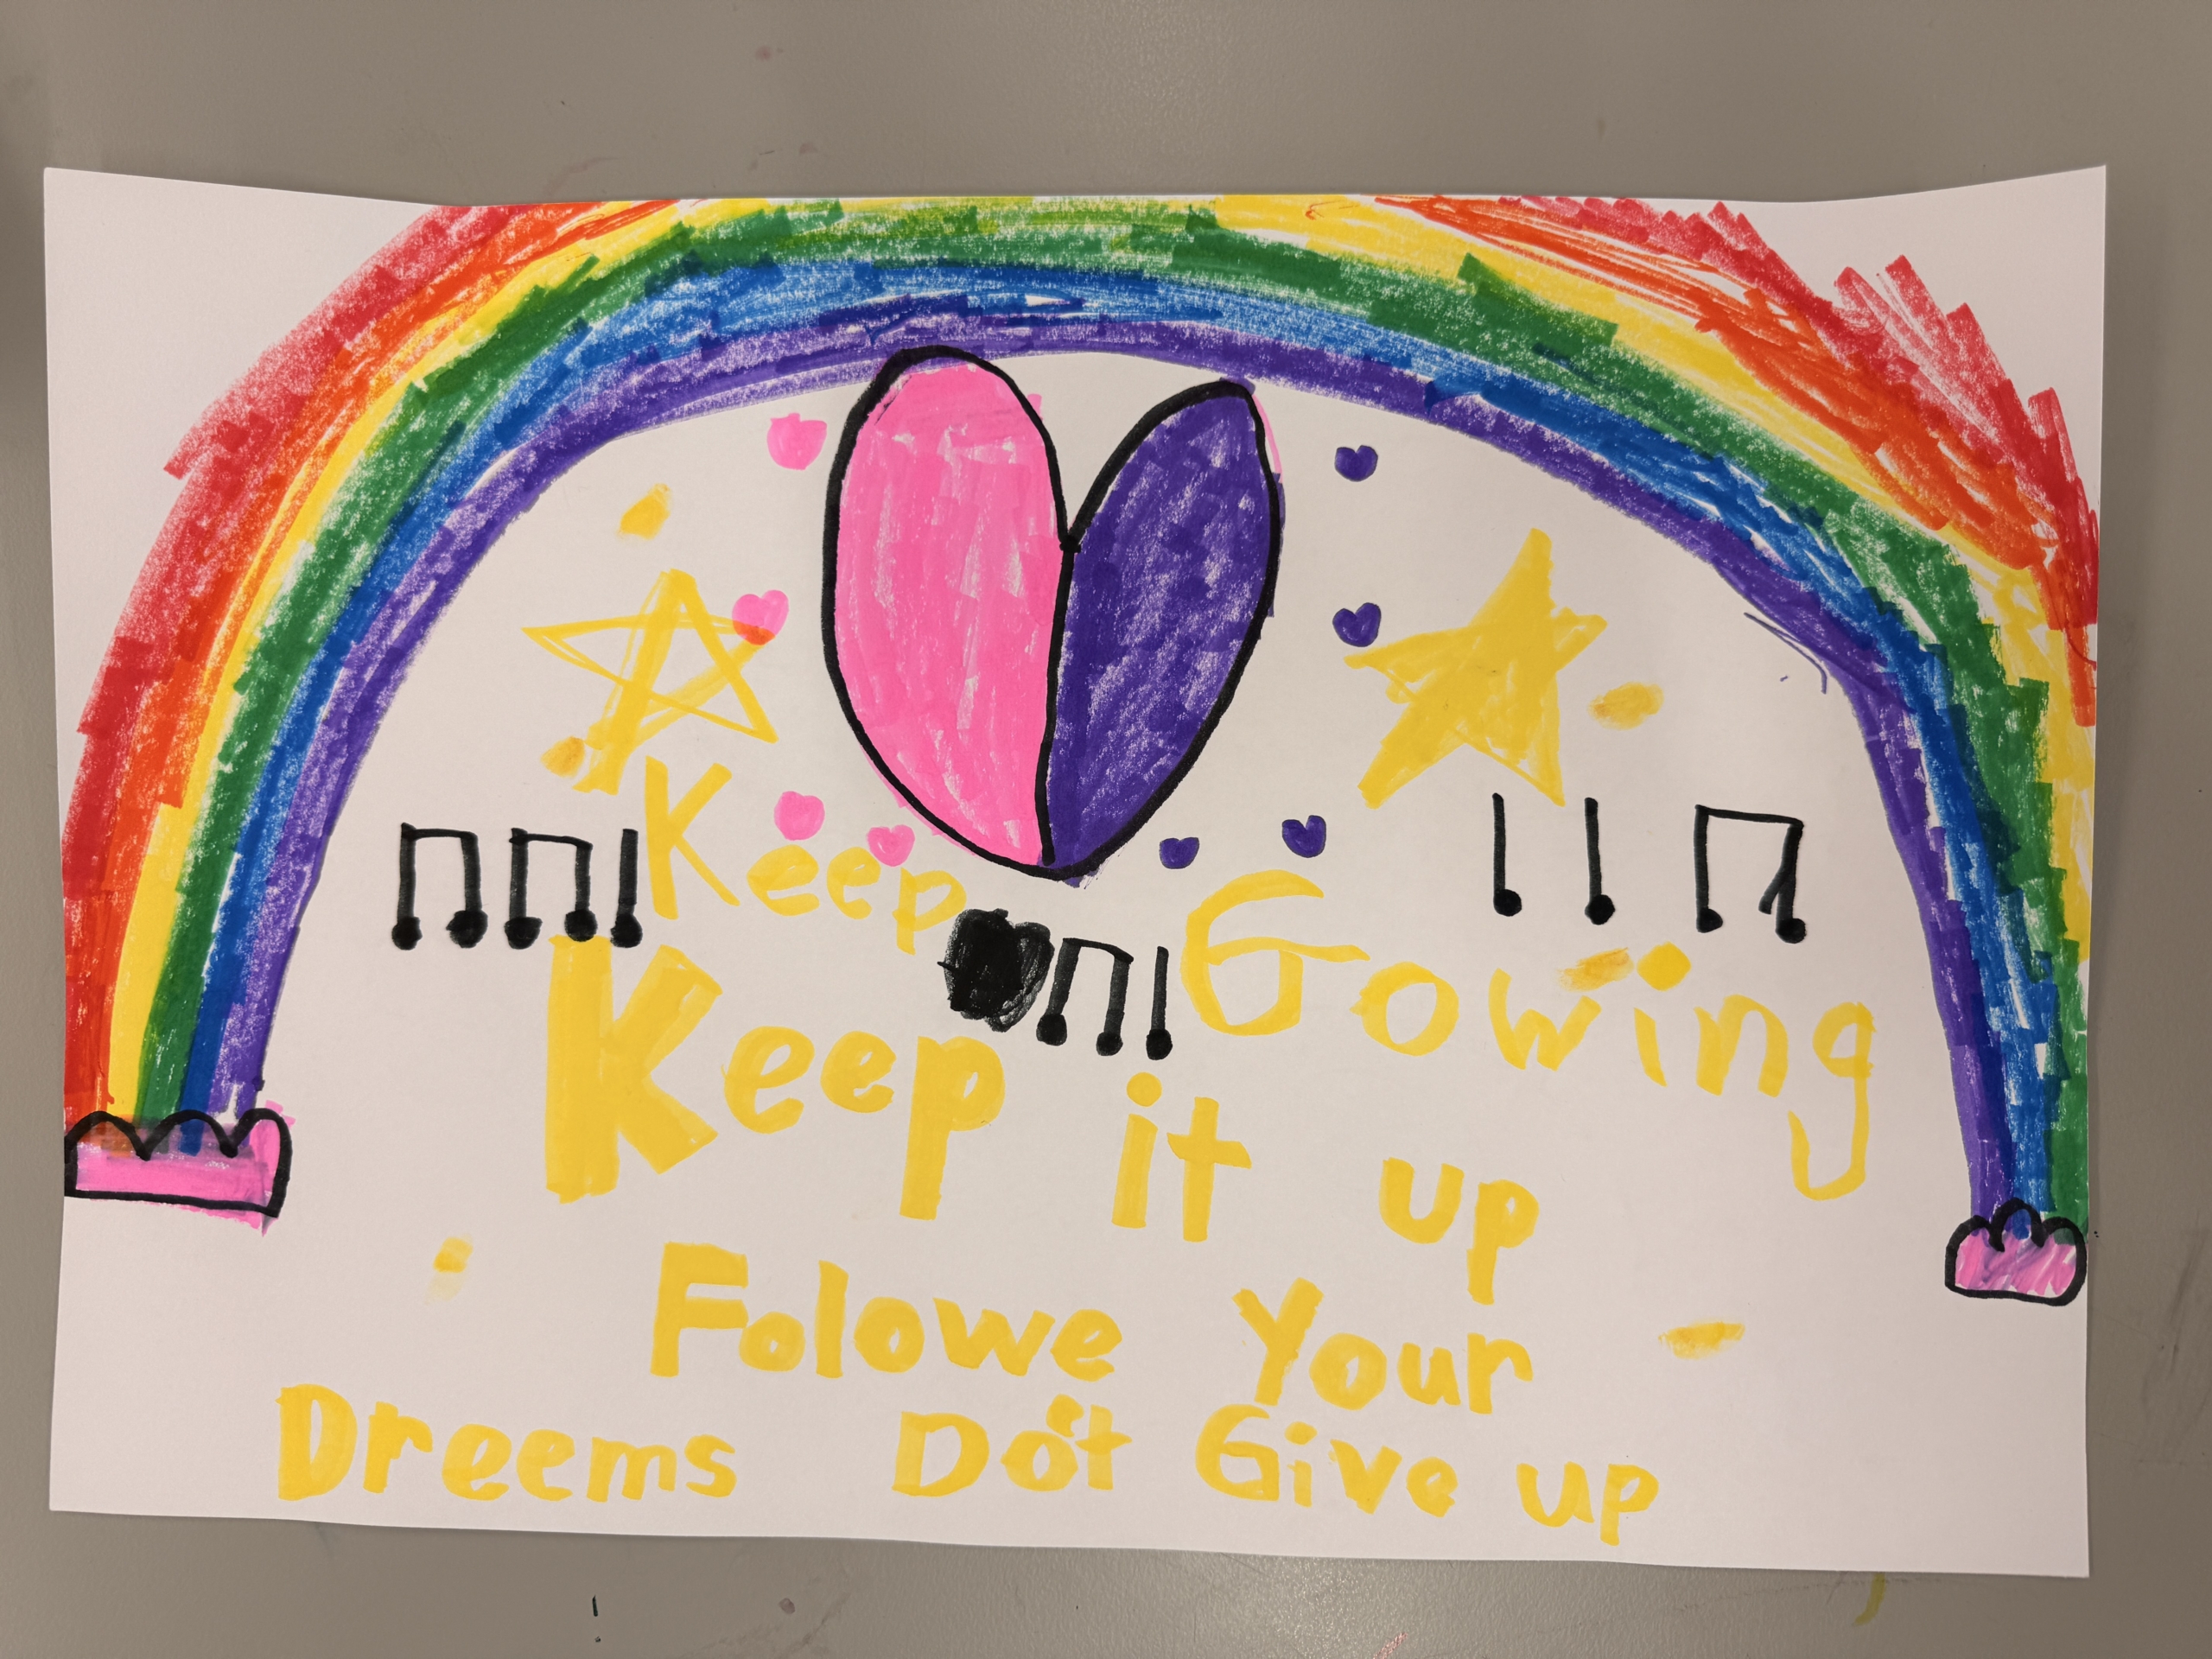 Keep Gowing
Keep it up
Folowe Your
Dreems Do't Give up